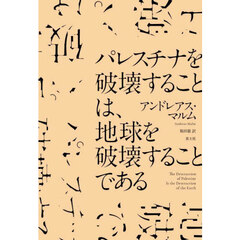 パレスチナを
破壊すること
は、
地球を
破壊すること
である
アンドレアス・
マルム
Andreas Malm
箱田徹 訳
The Destruction
of Palestine
Is the Destruction
of the Earth